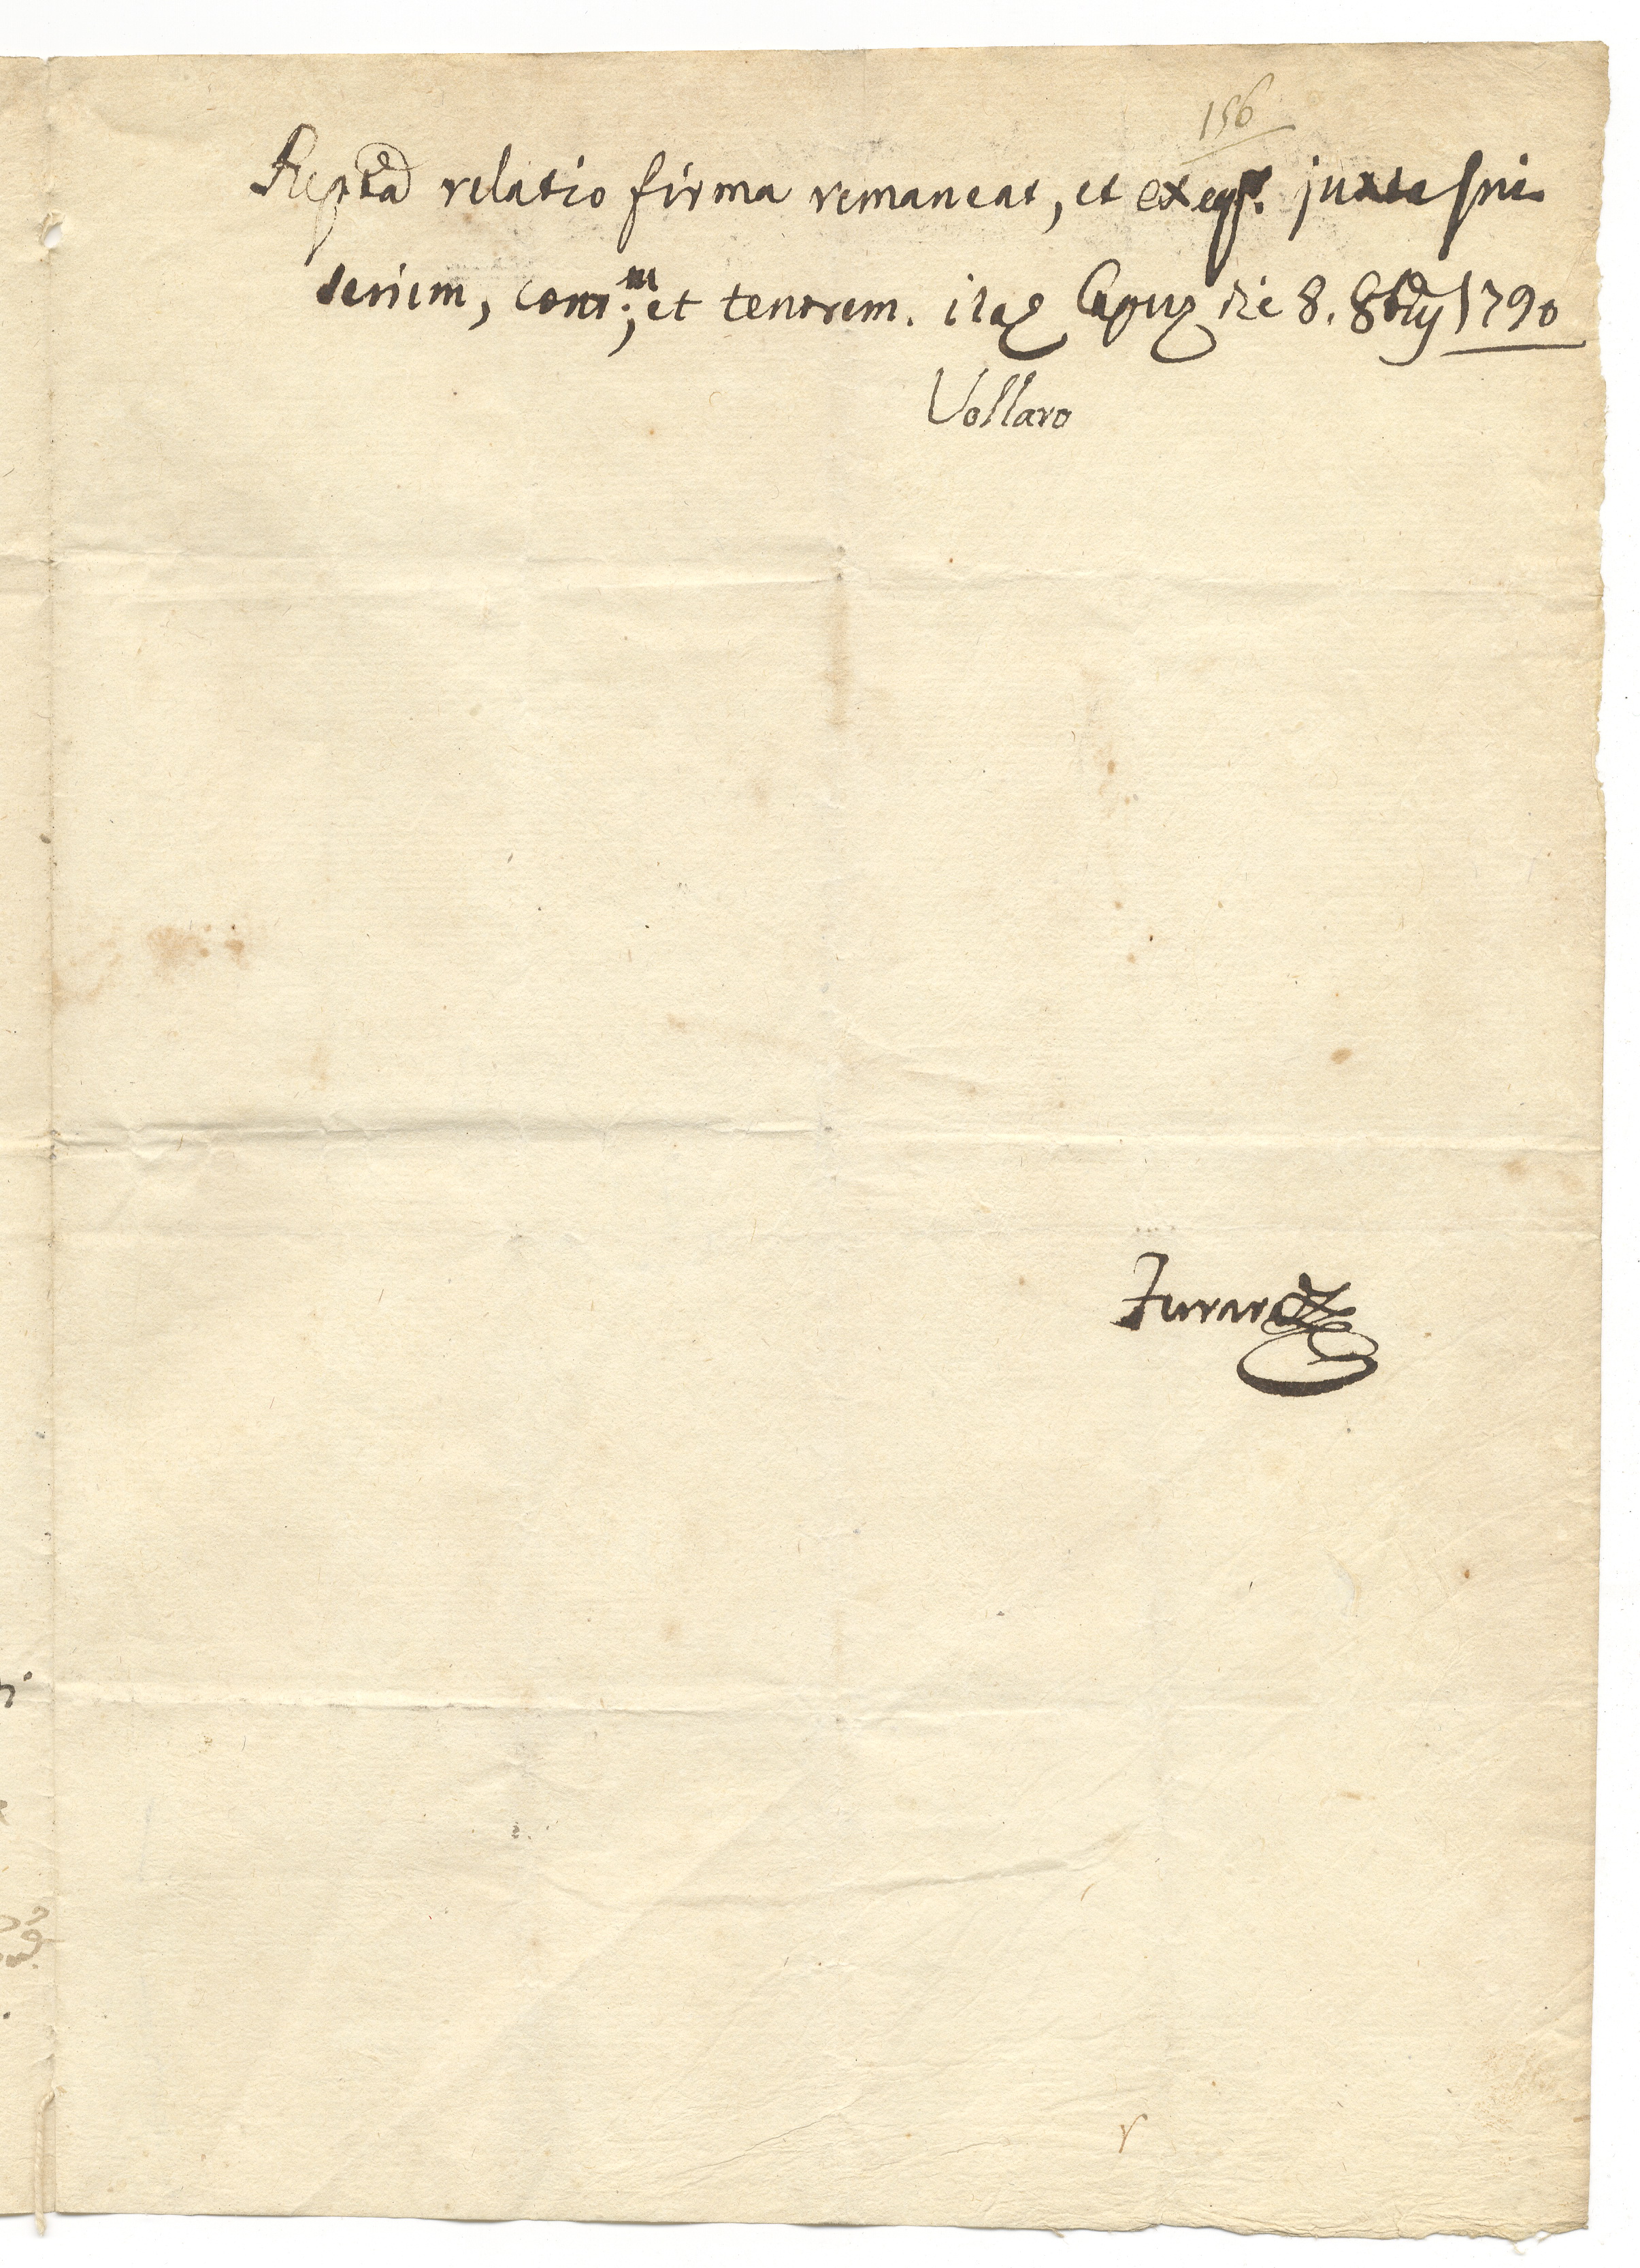 156
relatio firma remaneat, et exeqr. juxta sui
seriem, cont.m, et tenorem. itaq Capuȩ die 8. 8bris 1790
Vollaro